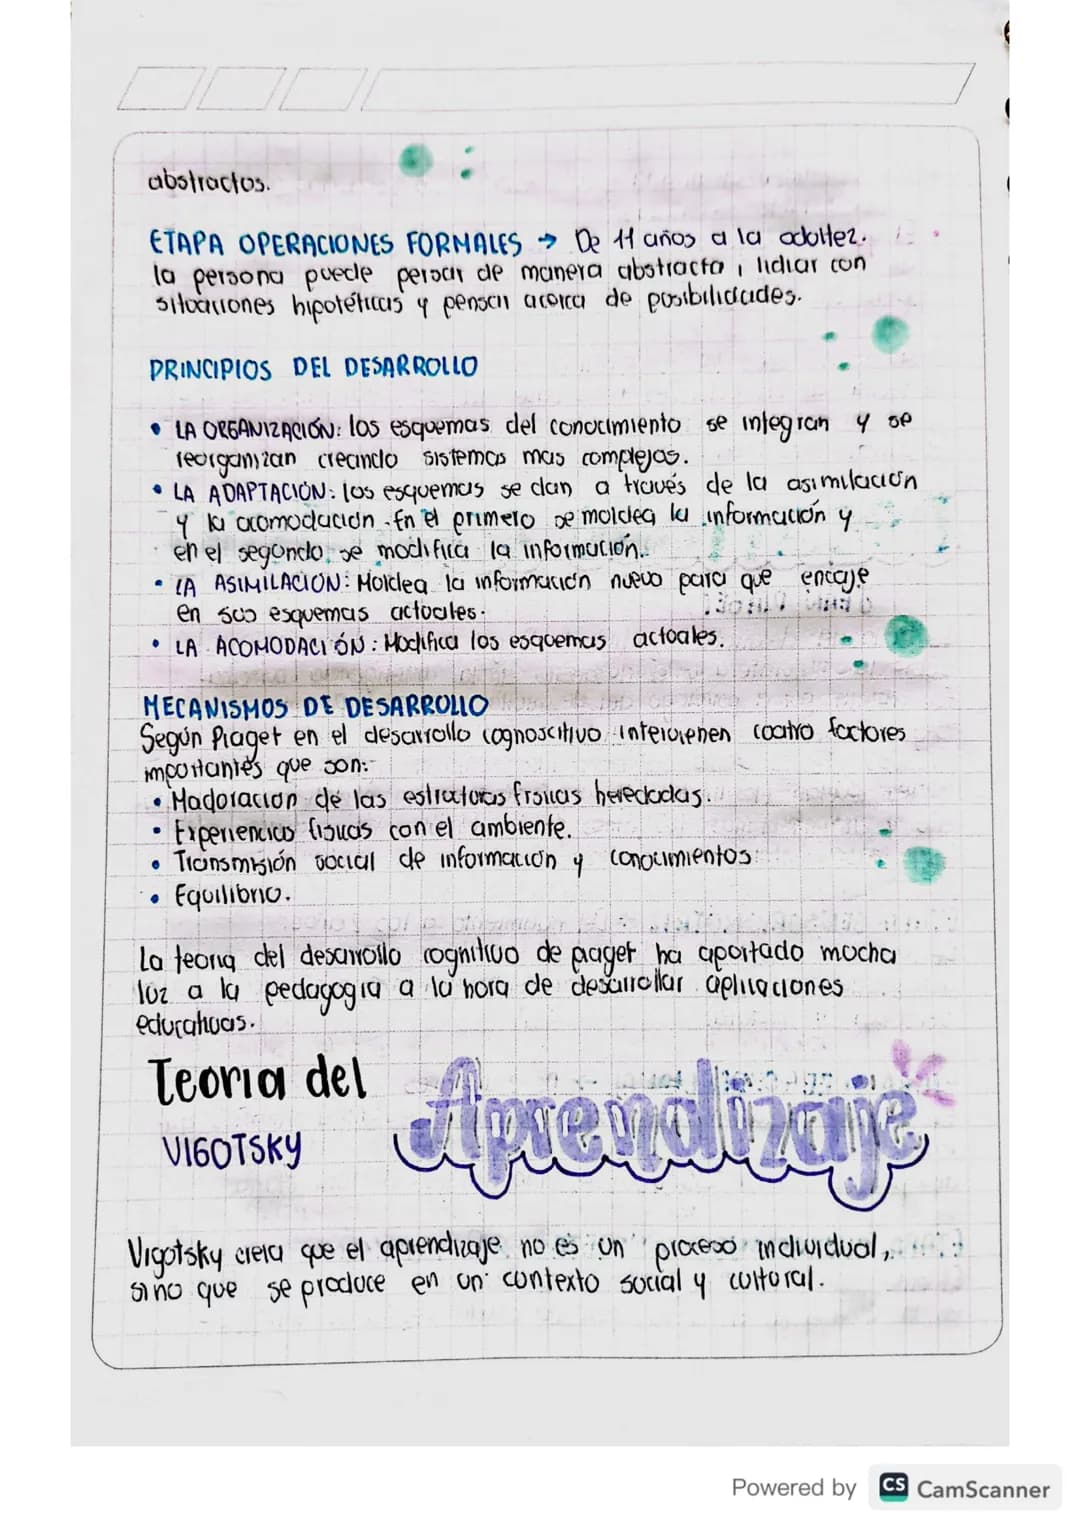 abstractos.
ETAPA OPERACIONES FORMALES → De 11 años a la adultez.
la persona puede pensar de manera abstracta, lidiar con
situaciones hipotéticas y pensar acerca de posibilidades.
PRINCIPIOS DEL DESARROLLO
• LA ORGANIZACIÓN: los esquemas del conocimiento se integran y se
reorganizan creando sistemas mas complejos.
• LA ADAPTACIÓN: los esquemas se dan a través de la asimilación
y la acomodación. En el primero se moldea la información y
en el segundo se modifica la información.
• LA ASIMILACIÓN: Moldea la información nueva para que encaje
en sus esquemas actuales.
• LA ACOMODACIÓN: Modifica los esquemas actuales.
MECANISMOS DE DESARROLLO
Según Piaget en el desarrollo cognoscitivo intervienen cuatro factores
importantes que son:
• Maduracion de las estruturas frsicas heredadas.
• Experiencias fisicas con el ambiente.
• Transmisión social de información y conocimientos
• Equilibrio.
La teoria del desarrollo cognitivo de piaget ha aportado mucha
luz a la pedagogia a la hora de desarrollar aplicaciones
educativas.
Teoria del Aprendizaje
VIGOTSKY
Vigotsky creia que el aprendizaje no es un proceso individual,
sino que se produce en un contexto social y cultural.
Powered by CS CamScanner